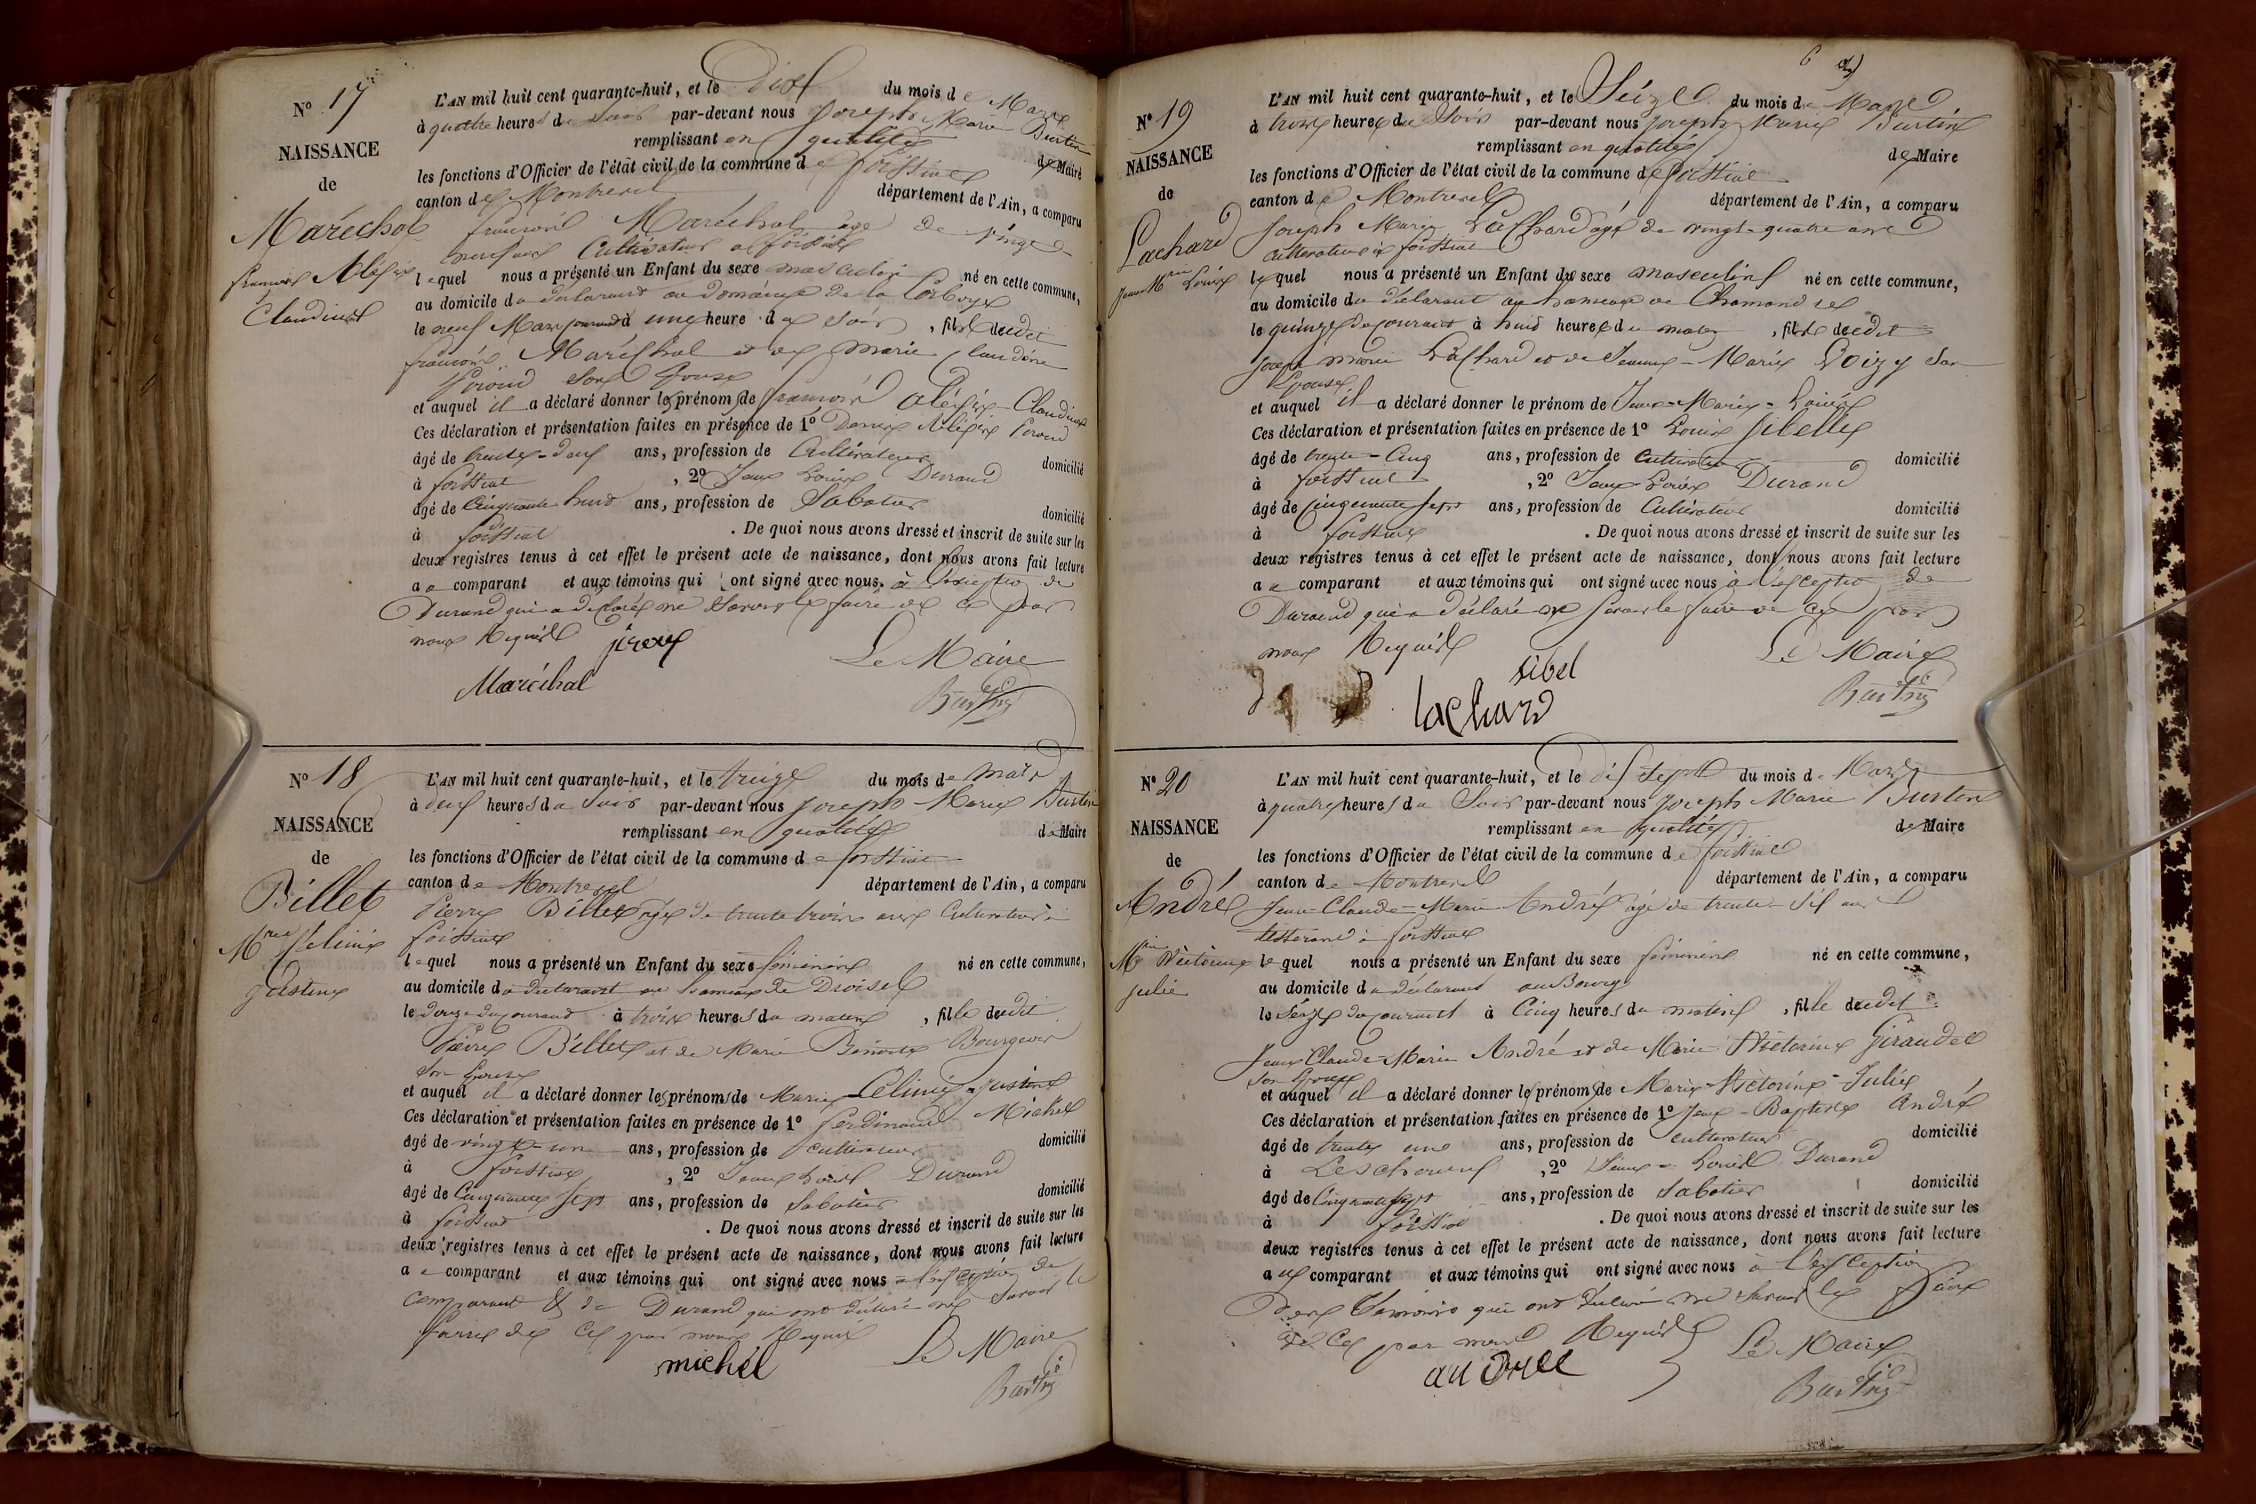 N° 17
NAISSANCE
de
Maréchal
françois Alésix
Claudius
L'AN mil huit cent quarante-huit, et le Dix du mois de Mars
à quatre heures du Soir par-devant nous Joseph Marie Burtin
remplissant en qualité de Maire
les fonctions d'Officier de l'état civil de la commune de foissiat
canton de Montrevel département de l'Ain, a comparu
françois Maréchal âgé de vingt
neuf ans Cultivateur à foissiat
lequel nous a présenté un Enfant du sexe masculin né en cette commune,
au domicile du déclarant au domaine de la
le neuf Mars courant à une heure du soir, fils dudit
françois Maréchal et de marie Claudine
son épouse
et auquel il a déclaré donner les prénoms de françois Alésix Claudius
Ces déclaration et présentation faites en présence de 1°
âgé de trente-deux ans, profession de Cultivateur domicilié
à foissiat, 2° Jean Louis Durand
âgé de Cinquante huit ans, profession de Sabotier domicilié
à foissiat. De quoi nous avons dressé et inscrit de suite sur les
deux registres tenus à cet effet le présent acte de naissance, dont nous avons fait lecture
au comparant et aux témoins qui ont signé avec nous à l'exception de
Durand qui a déclaré ne savoir le faire de ce par
nous Requis
Maréchal
Le Maire
Burtin
N° 18
NAISSANCE
de
Billet
Mie Celinie
Justine
L'AN mil huit cent quarante-huit, et le treize du mois de Mars
à deux heures du Soir par-devant nous Joseph Marie Burtin
remplissant en qualité de Maire
les fonctions d'Officier de l'état civil de la commune de foissiat
canton de Montrevel département de l'Ain, a comparu
Pierre Billet âgé de trente trois ans Cultivateur à
foissiat
lequel nous a présenté un Enfant du sexe féminin né en cette commune,
au domicile du déclarant au hameau de Droisel
le Douze du courant à trois heures du matin, fille dudit
Pierre Billet et de Marie Benoite Bourgeois
son épouse
et auquel il a déclaré donner les prénoms de Marie Celinie Justine
Ces déclaration et présentation faites en présence de 1° ferdinand Michel
âgé de vingt un ans, profession de cultivateur domicilié
à foissiat, 2° Jean Louis Durand
âgé de Cinquante sept ans, profession de Sabotier domicilié
à foissiat. De quoi nous avons dressé et inscrit de suite sur les
deux registres tenus à cet effet le présent acte de naissance, dont nous avons fait lecture
au comparant et aux témoins qui ont signé avec nous à l'exception de
comparant & de Durand qui ont déclaré ne savoir le
faire de ce par nous Requis
michel
Le Maire
Burtin
6
N° 19
NAISSANCE
de
Lachard
Jean Mie Louis
L'AN mil huit cent quarante-huit, et le Seize du mois de Mars
à trois heures du Soir par-devant nous Joseph Marie Burtin
remplissant en qualité de Maire
les fonctions d'Officier de l'état civil de la commune de foissiat
canton de Montrevel département de l'Ain, a comparu
Joseph Marie Lachard âgé de vingt-quatre ans
cultivateur à foissiat
lequel nous a présenté un Enfant du sexe masculin né en cette commune,
au domicile du déclarant au hameau de Chamandre
le quinze du courant à huit heures du matin, fils dudit
Joseph Marie Lachard et de Jeanne-Marie Loizy son
Epouse
et auquel il a déclaré donner le prénom de Jean-Marie-Louis
Ces déclaration et présentation faites en présence de 1° Louis Sibelle
âgé de trente-Cinq ans, profession de Cultivateur domicilié
à foissiat, 2° Jean-Louis Durand
âgé de Cinquante sept ans, profession de Cultivateur domicilié
à foissiat. De quoi nous avons dressé et inscrit de suite sur les
deux registres tenus à cet effet le présent acte de naissance, dont nous avons fait lecture
au comparant et aux témoins qui ont signé avec nous à l'exception de
Durand qui a déclaré ne savoir le faire de ce par
nous Requis
sibel
lachard
Le Maire
Burtin
N° 20
NAISSANCE
de
André
Mie Victorine
Julie
L'AN mil huit cent quarante-huit, et le dix sept du mois de Mars
à quatre heures du Soir par-devant nous Joseph Marie Burtin
remplissant en qualité de Maire
les fonctions d'Officier de l'état civil de la commune de foissiat
canton de Montrevel département de l'Ain, a comparu
Jean-Claude-Marie André âgé de trente-six ans
tisserand à foissiat
lequel nous a présenté un Enfant du sexe féminin né en cette commune,
au domicile du déclarant au Bourg
le Seize du courant à Cinq heures du matin, fille dudit
Jean Claude-Marie André et de Marie Victorine Giraudet
son épouse
et auquel il a déclaré donner les prénoms de Marie-Victorine-Julie
Ces déclaration et présentation faites en présence de 1° Jean-Baptiste André
âgé de trente un ans, profession de cultivateur domicilié
à Leschoux, 2° Jean-Louis Durand
âgé de Cinquante sept ans, profession de Sabotier domicilié
à foissiat. De quoi nous avons dressé et inscrit de suite sur les
deux registres tenus à cet effet le présent acte de naissance, dont nous avons fait lecture
au comparant et aux témoins qui ont signé avec nous à l'exception
des témoins qui ont déclaré ne savoir le faire
de ce par nous Requis
andre
Le Maire
Burtin